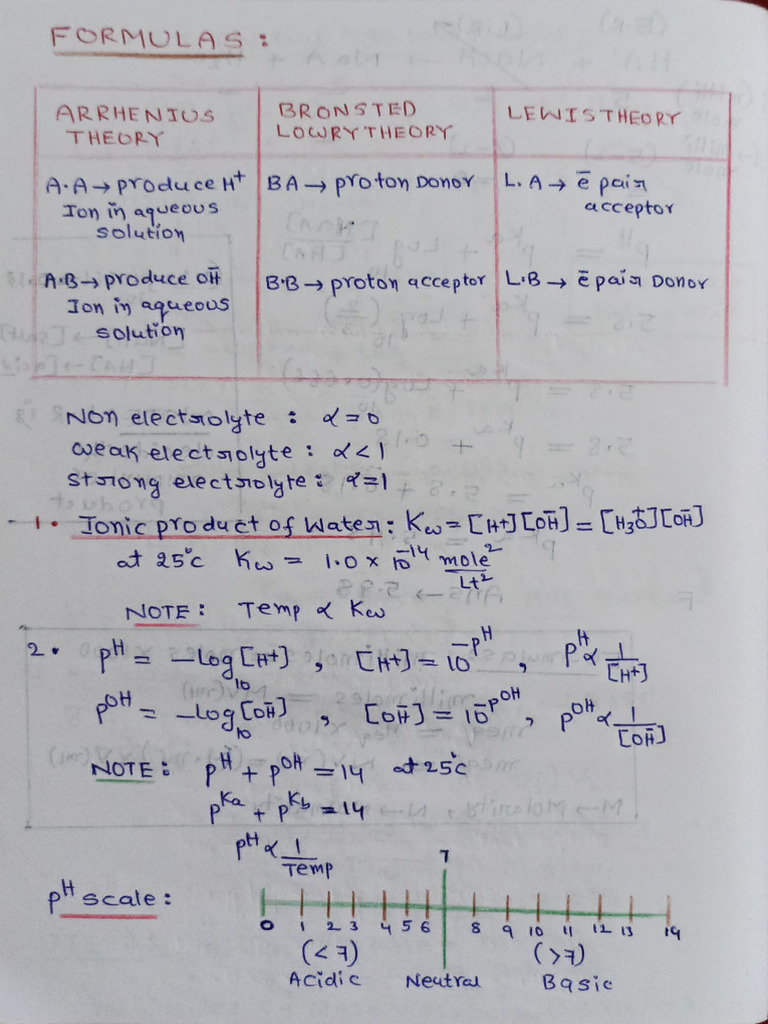 FORMULAS :
ARRHENIUS THEORY
BRONSTED LOWRY THEORY
LEWIS THEORY
A.A → produce H⁺
Ion in aqueous
solution
BA → proton Donor
L.A → ē pair
acceptor
A.B → produce OH̄
Ion in aqueous
solution
B.B → proton acceptor
L.B → ē pair Donor
Non electrolyte : α = 0
weak electrolyte : α < 1
strong electrolyte : α = 1
1. Ionic product of Water : Kw = [H+][OH̄] = [H₃O⁺][OH̄]
at 25°c Kw = 1.0 × 10⁻¹⁴ mole²/Lt²
NOTE : Temp ∝ Kw
2. pH = −log₁₀[H+] , [H+] = 10^−pH , pH ∝ 1/[H+]
pOH = −log₁₀[OH̄] , [OH̄] = 10^−pOH , pOH ∝ 1/[OH̄]
NOTE : pH + pOH = 14 at 25°c
pKa + pKb = 14
pH ∝ 1/Temp
7
pH scale :
0 1 2 3 4 5 6 8 9 10 11 12 13 14
(<7) (>7)
Acidic Neutral Basic